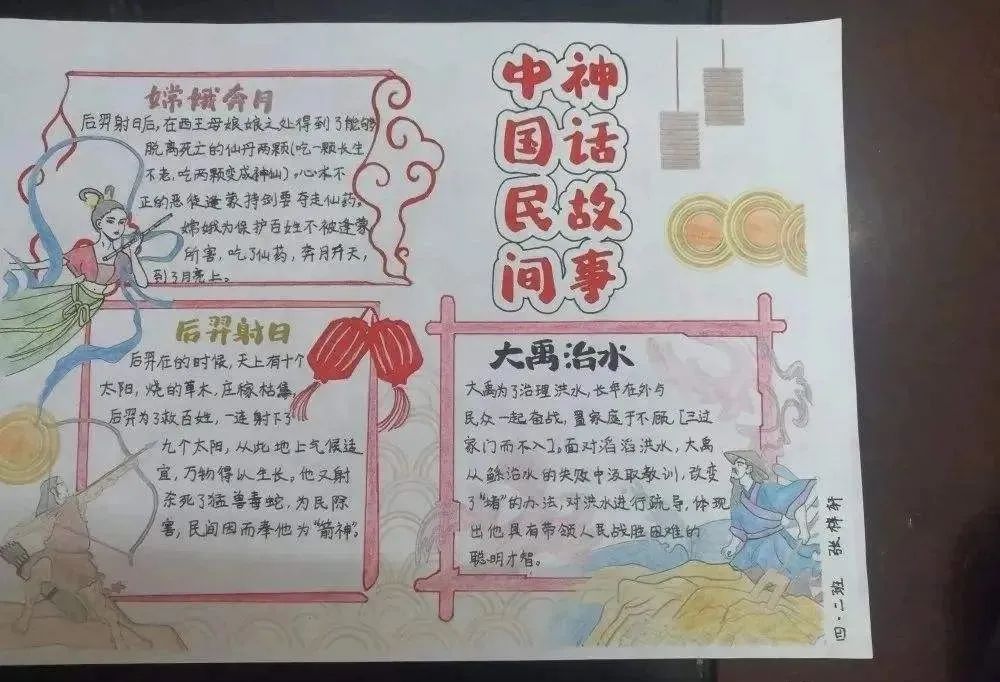 中国民间
神话故事
嫦娥奔月
后羿射日后,在西王母娘娘之处得到了能够
脱离死亡的仙丹两颗(吃一颗长生
不老,吃两颗变成神仙)。心术不
正的恶徒逢蒙持剑要夺走仙药。
嫦娥为保护百姓不被逢蒙
所害,吃了仙药,奔月升天,
到了月亮上。
后羿射日
后羿在的时候,天上有十个
太阳,烧的草木,庄稼枯焦
后羿为了救百姓,一连射下了
九个太阳,从此地上气候适
宜,万物得以生长。他又射
杀死了猛兽毒蛇,为民除
害,民间因而奉他为“箭神”。
大禹治水
大禹为了治理洪水,长年在外与
民众一起奋战,置家庭于不顾[三过
家门而不入]。面对滔滔洪水,大禹
从鲧治水的失败中汲取教训,改变
了“堵”的办法,对洪水进行疏导,体现
出他具有带领人民战胜困难的
聪明才智。
四.二班 张梓轩